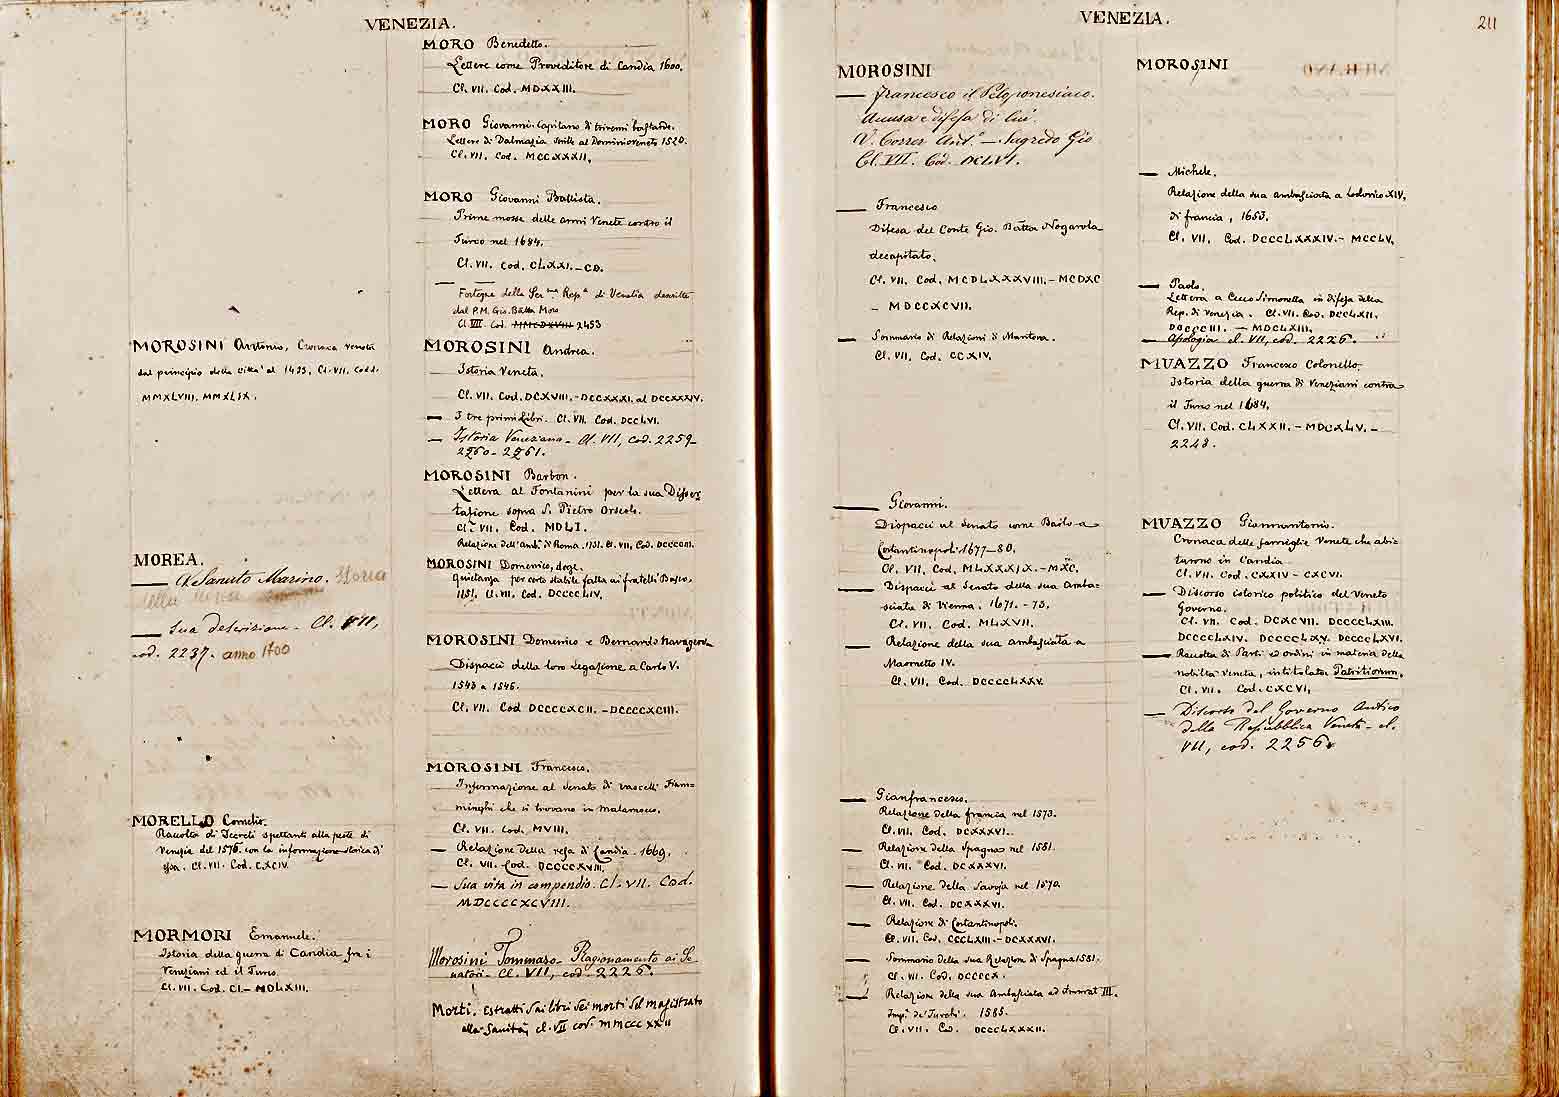 VENEZIA.
MOROSINI Antonio, Cronaca veneta
dal principio della Città al 1433. Cl. VII. Codd.
MMXLVIII. MMXLIX.
MOREA.
— V. Sanuto Marino. Storia
della
— Sua descrizione - Cl. VII,
cod. 2237. anno 1700
MORELLO Cornelio.
Raccolta di Secreti spettanti alla peste di
Venezia del 1576. con la informazione storica di
essa. Cl. VII. Cod. CXCIV.
MORMORI Emanuele.
Istoria della guerra di Candia fra i
Veneziani ed il Turco.
Cl. VII. Cod. CI.- MDLXIII.
MORO Benedetto.
Lettere come Proveditore di Candia 1600.
Cl. VII. Cod. MDXXIII.
MORO Giovanni. Capitano di triremi bastarde.
Lettere di Dalmazia scritte al Dominio veneto 1520.
Cl. VII. Cod. MCCXXXII.
MORO Giovanni Battista.
Prime mosse delle armi Venete contro il
Turco nel 1684.
Cl. VII. Cod. CLXXI.-CD.
— — Fortezze della Ser.ma Rep.a di Venezia descritte
dal P.M. Gio. Batta Moro
Cl VII. Cod. MMCDXVIII 2453
MOROSINI Andrea.
Istoria Veneta.
Cl. VII. Cod. DCXVIII.-DCCXXXI. al DCCXXXIV.
— I tre primi Libri. Cl. VII. Cod. DCCLVI.
— Istoria Veneziana - Cl. VII, cod. 2259-
2260- 2261.
MOROSINI Barbon.
Lettera al Fontanini per la sua Disser
tazione sopra S. Pietro Orseolo.
Cl. VII. Cod. MDLI.
Relazione dell'Amb. di Roma. 1731. Cl. VII. Cod. DCCCCIII.
MOROSINI Domenico, doge.
Quietanza per certo stabile fatta ai fratelli Basso,
1151. Cl. VII. Cod. DCCCCLIV.
MOROSINI Domenico e Bernardo Navagero
Dispacci della loro Legazione a Carlo V.
1543 a 1546.
Cl. VII. Cod DCCCCXCII.-DCCCCXCIII.
MOROSINI Francesco.
Informazione al Senato di vascelli Fiam-
minghi che si trovano in Malamocco.
Cl. VII. Cod. MVIII.
— Relazione della resa di Candia. 1669.
Cl. VII. Cod. DCCCCXVIII.
— Sua vita in compendio. Cl. VII. Cod.
MDCCCCXCVIII.
Morosini Tommaso - Ragionamento ai Se-
natori - Cl. VII, cod. 2226.
Morti. Estratti dai libri dei morti del magistrato
alla Sanità, cl. VII cod. MMCCCXXII
VENEZIA.
211
MOROSINI
— Francesco il Peloponesiaco.
Accusa e difesa di lui.
V. Correr Ant.o — Sagredo Gio
Cl. VII. Cod. DCLVI.
— Francesco
Difesa del Conte Gio. Batta Nogarola
decapitato.
Cl. VII. Cod. MCDLXXXVIII.- MCDXC
- MDCCXCVII.
— Sommario di Relazioni di Mantova.
Cl. VII. Cod. CCXIV.
— Giovanni.
Dispacci al Senato come Bailo a
Costantinopoli 1677-80.
Cl. VII. Cod. MLXXXIX.- MXC.
— Dispacci al Senato della sua Amba-
sciata di Vienna. 1671.-73.
Cl. VII. Cod. MLXVII.
— Relazione della sua ambasciata a
Maometto IV.
Cl. VII. Cod. DCCCCLXXV.
— Gianfrancesco.
Relazione della francia nel 1573.
Cl. VII. Cod. DCXXXVI.
— Relazione della Spagna nel 1581.
Cl. VII. Cod. DCXXXVI.
— Relazione della Savoja nel 1570.
Cl. VII. Cod. DCXXXVI.
— Relazione di Costantinopoli.
Cl. VII. Cod. CCCLXIII.-DCXXXVI.
— Sommario della sua Relazion di Spagna 1581.
Cl. VII. Cod. DCCCCX.
— Relazione della sua Ambasciata ad Amurat III.
Imp. de' Turchi. 1585.
Cl. VII. Cod. DCCCLXXXII.
MOROSINI
— Michele.
Relazione della sua ambasciata a Lodovico XIV.
di francia, 1653.
Cl. VII. Cod. DCCCLXXXIV.- MCCLV.
— Paolo.
Lettera a Cecco Simonetta in difesa della
Rep. di Venezia. Cl. VII. Cod. DCCLXII.
DCCCCIII. — MDCLXIII.
— Apologia cl. VII, cod. 2226.
MUAZZO Francesco Colonello.
Istoria della guerra di Veneziani contra
il Turco nel 1684.
Cl. VII. Cod. CLXXII.- MDCXLV.-
2243.
MUAZZO Giannantonio.
Cronaca delle famiglie Venete che abi-
tarono in Candia
Cl. VII. Cod. CXXIV - CXCVI.
— Discorso istorico politico del Veneto
Governo.
Cl. VII. Cod. DCXCVII. DCCCCLXIII.
DCCCCLXIV. DCCCCLXV. DCCCCLXVI.
— Raccolta di Parti ed ordini in materia della
nobiltà Veneta, intitolata Patritiorum.
Cl. VII. Cod. CXCVI.
— Discorso del Governo Antico
della Repubblica Veneta - cl.
VII, cod. 2256.